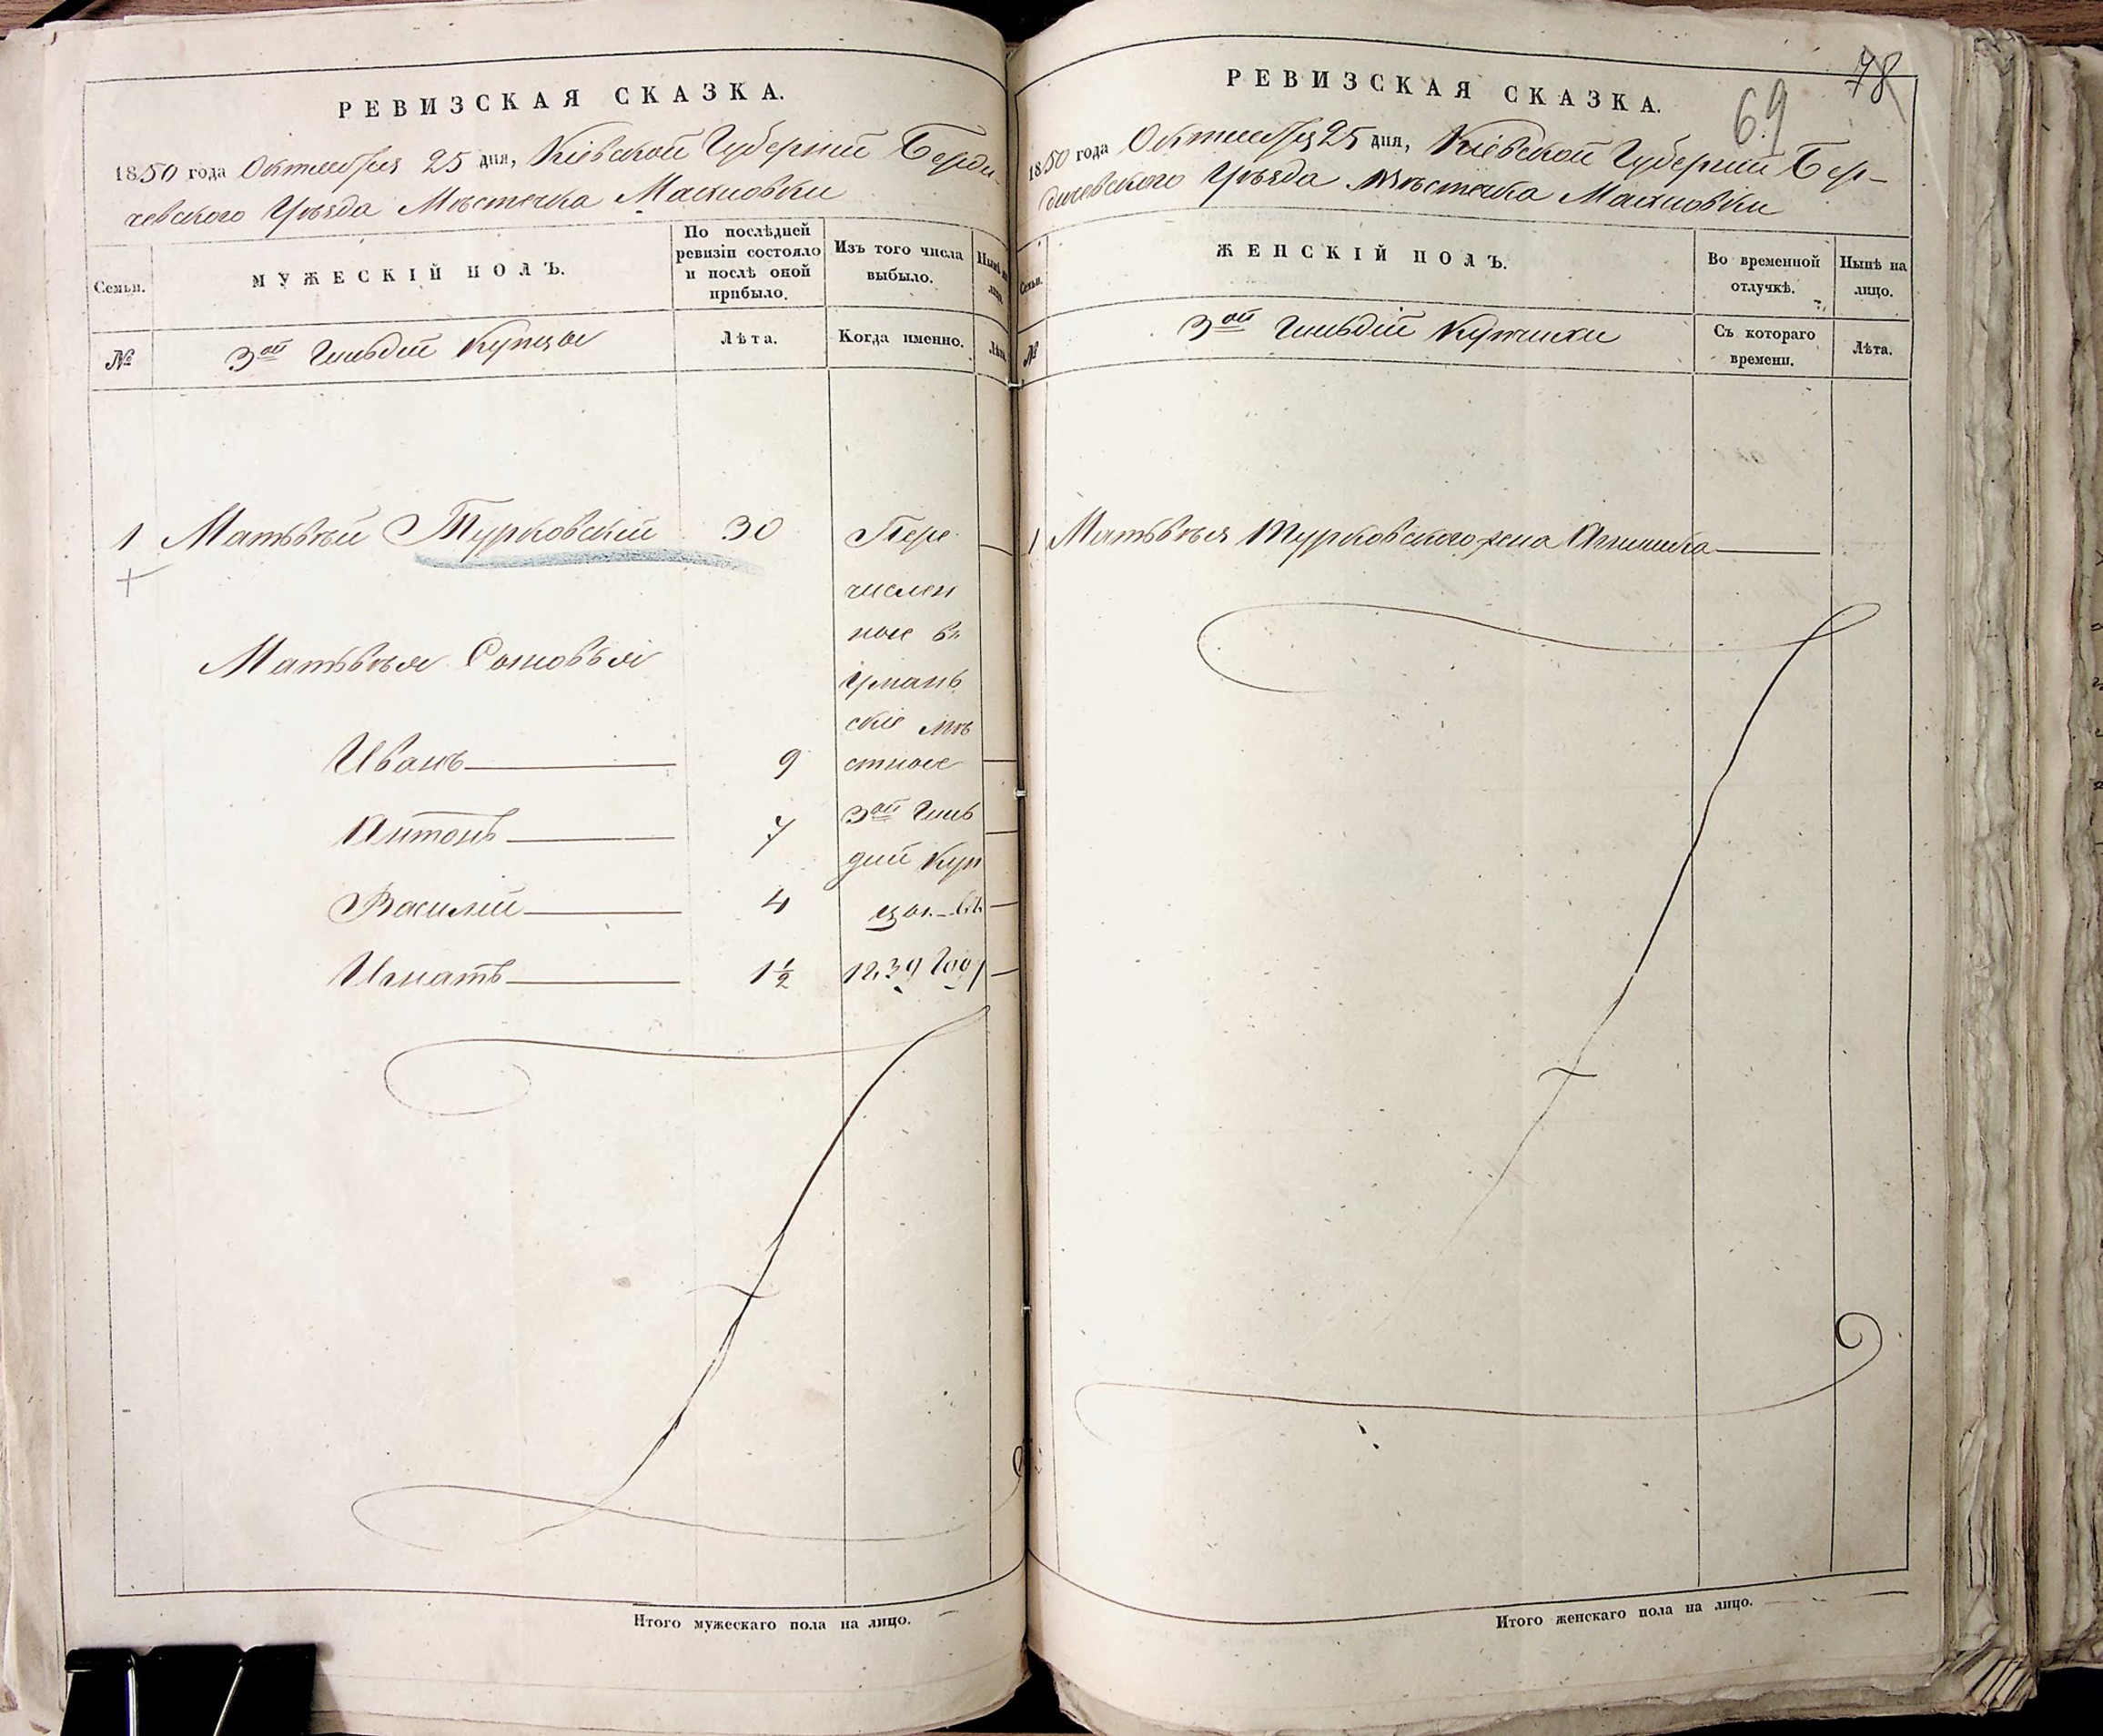 РЕВИЗСКАЯ СКАЗКА.
1850 года Октября 25 дня, Кіевской Губерніи Берди-
чевского Уѣзда Мѣстечка Махновки
Семьи.
МУЖЕСКІЙ ПОЛЪ.
По послѣдней
ревизіи состояло
и послѣ оной
прибыло.
Изъ того числа
выбыло.
Нынѣ на
лицо.
№
3ой Гильдіи Купцы
Лѣта.
Когда именно.
Лѣта
1 Матвѣй Турковскій 30
Пере
числен
ные въ
Уман
скіе мѣ
стные
3ой Гиль
діи Куп
цы въ
1839 году
Матвѣя Сыновья
Иванъ 9
Антонъ 7
Василій 4
Игнатъ 1½
Итого мужескаго пола на лицо.
78
69
РЕВИЗСКАЯ СКАЗКА.
1850 года Октября 25 дня, Кіевской Губерніи Бер-
дичевского Уѣзда Мѣстечка Махновки
Семьи.
ЖЕНСКІЙ ПОЛЪ.
Во временной
отлучкѣ.
Нынѣ на
лицо.
№
3ой Гильдіи Купчихи
Съ котораго
времени.
Лѣта.
1 Матвѣя Турковского жена
Итого женскаго пола на лицо.